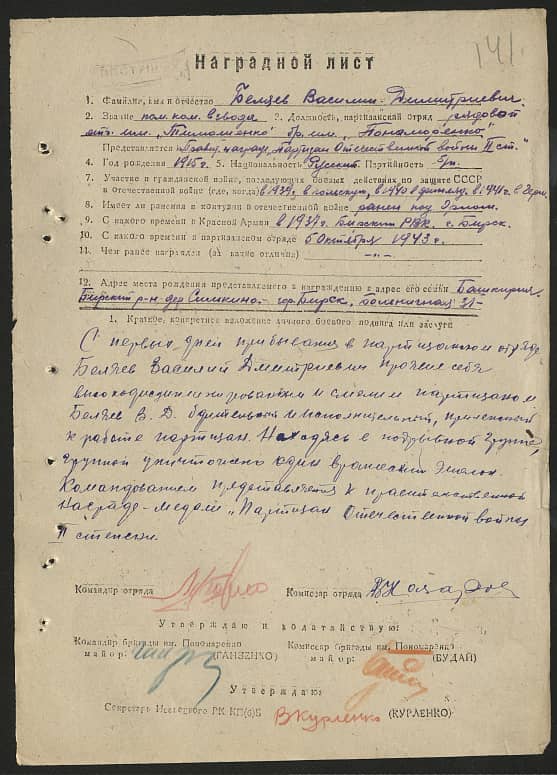 141.
Наградной лист
1. Фамилия, имя и отчество Беляев Василий Димитриевич.
2. Звание пом. ком. взвода 3. Должность, партизанский отряд рядовой
отр. им. „Тимошенко" бр. им. „Понамаренко"
Представляется к Правит. награде „Партизан Отечественной войны II ст."
4. Год рождения 1915 г. 5. Национальность Русский Партийность б/п.
7. Участие в гражданской войне, последующих боевых действиях по защите СССР
в Отечественной войне (где, когда) в 1939 г. в польскую, в 1940 в финскую, в 1941 г. в Герм.
8. Имеет ли ранения и контузии в отечественной войне ранен под Орлом.
9. С какого времени в Красной Армии в 1937 г. Бирский РВК. г. Бирск.
10. С какого времени в партизанском отряде 5 Октября 1943 г.
11. Чем ранее награжден (за какие отличия) —"—
12. Адрес места рождения представляемого к награждению и адрес его семьи Башкирия
Бирский р-н дер Симкино. гор Бирск, Больничная 31-
1. Краткое, конкретное изложение личного боевого подвига или заслуги
С первых дней прибывания в партизанском отряде
Беляев Василий Дмитриевич проявил себя
высокодисциплинированным и смелым партизаном
Беляев В. Д. бдительный и исполнительный, прилежный
к работе партизан. Находясь в подрывной группе,
группой уничтожено один вражеский эшелон.
Командованием представляется к правительственной
награде – медали „Партизан Отечественной войны
II степени.
Командир отряда
Комиссар отряда
Утверждаю и ходатайствую:
Командир бригады им. Пономаренко
Комиссар бригады им. Пономаренко
майор: (ГАНЗЕНКО)
майор: (БУДАЙ)
Утверждаю:
Секретарь РК КП(б)Б ВКурленко (КУРЛЕНКО)